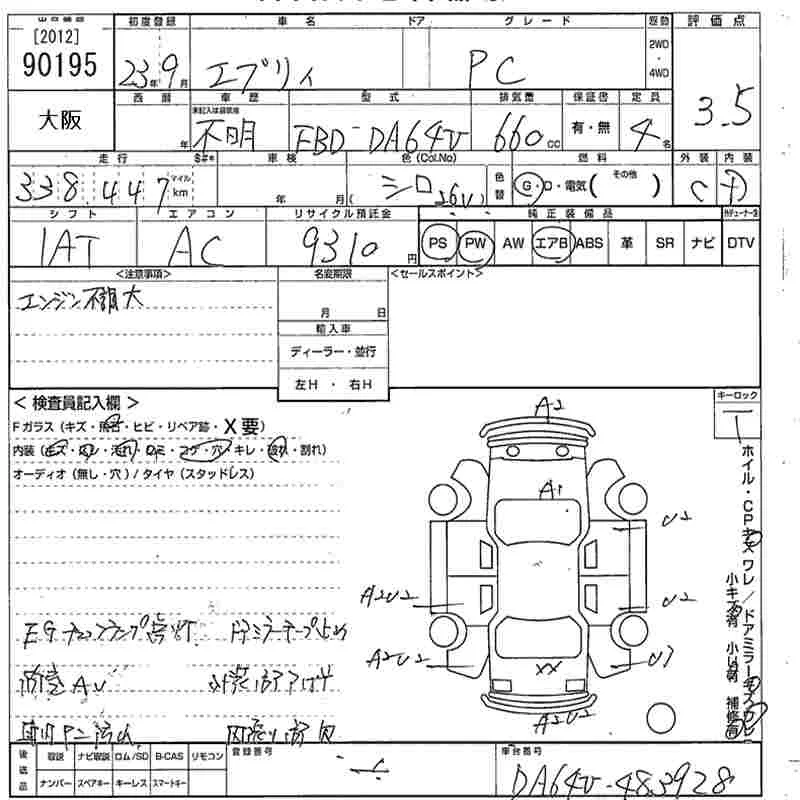 [2012]
90195
大阪
初度登録 車名 ドア グレード 駆動 評価点
23年9月 エブリィ PC 2WD・4WD 3.5
西暦 車歴 型式 排気量 保証書 定員
未記入は自家用
年 不明 EBD-DA64V 660cc 有・無 4名
走行 車検 色(Col.No) 燃料 外装 内装
338,447 マイル km 年 月( シロ 26U) 色替 G・D・電気( その他 ) C D
シフト エアコン リサイクル預託金 純正装備品
IAT AC 9310円 PS PW AW エアB ABS 革 SR ナビ DTV
<注意事項> 名変期限 <セールスポイント>
エンジン不調大
月 日
輸入車
ディーラー・並行
左H ・ 右H
< 検査員記入欄 > キーロック
Fガラス (キズ・飛石・ヒビ・リペア跡・X要)
内装 (キズ・汚れ・コゲ・穴・キレ・破れ・割れ)
オーディオ (無し・穴) / タイヤ (スタッドレス)
A2
A1
U2
A2U2 U2
A2U2 U7
XX
A2U2
ホイル・CPキズ ワレ / ドアミラーキズ ワレ
小キズ有 小凹有 補修有
EGチェックランプ点灯 ドアミラーテープ止め
後送品 取説 ナビ取説 ロム/SD B-CAS リモコン 登録番号 車台番号
ナンバー スペアキー キーレス スマートキー DA64V-483928